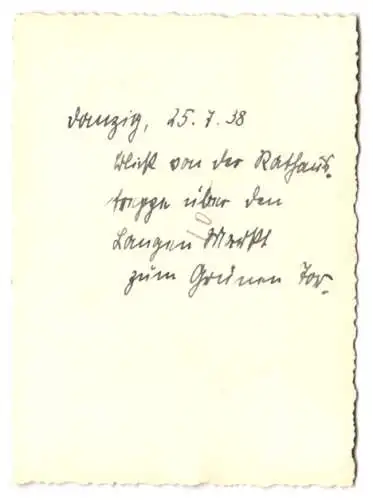 Danzig, 25.7.38
Blick von der Rathaus-
treppe über den
Langen Markt
zum Grünen Tor.